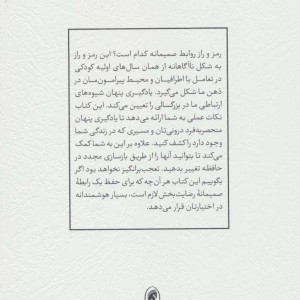 رمز و راز روابط صمیمانه کدام است؟ این رمز و راز
به شکل ناآگاهانه از همان سال‌های اولیه کودکی
در تعامل با اطرافیان و محیط پیرامون‌مان در
ذهن ما شکل می‌گیرد. یادگیری پنهان شیوه‌های
ارتباطی ما در بزرگسالی را تعیین می‌کند. این کتاب
نکات عملی به شما ارائه می‌دهد تا یادگیری پنهان
منحصربه‌فرد درونی‌تان و مسیری که در زندگی شما
وجود دارد را کشف کنید. علاوه بر این به شما کمک
می‌کند تا بتوانید آنها را از طریق بازسازی مجدد در
حافظه تغییر بدهید. تعجب‌برانگیز نخواهد بود اگر
بگوییم این کتاب هر آن‌چه که برای حفظ یک رابطهٔ
صمیمانهٔ رضایت‌بخش لازم است، بسیار هوشمندانه
در اختیارتان قرار می‌دهد.